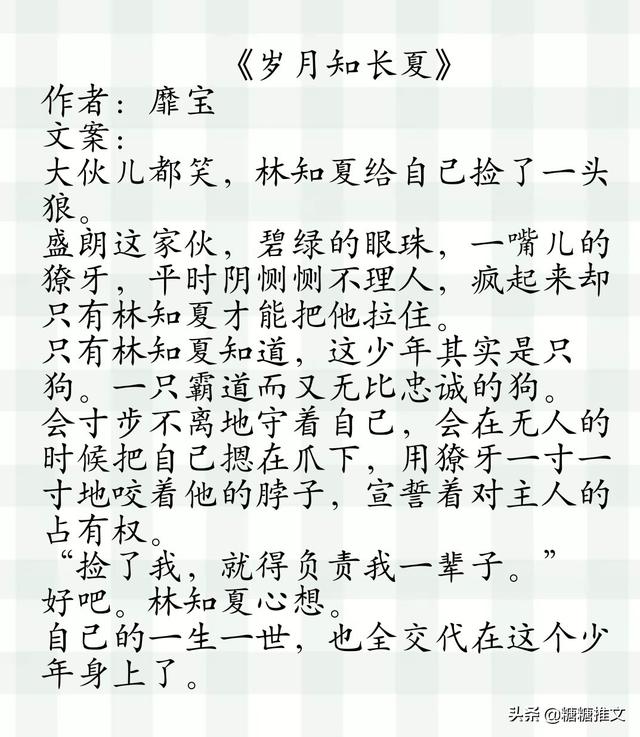 《岁月知长夏》
作者：靡宝
文案：
大伙儿都笑，林知夏给自己捡了一头
狼。
盛朗这家伙，碧绿的眼珠，一嘴儿的
獠牙，平时阴恻恻不理人，疯起来却
只有林知夏才能把他拉住。
只有林知夏知道，这少年其实是只
狗。一只霸道而又无比忠诚的狗。
会寸步不离地守着自己，会在无人的
时候把自己摁在爪下，用獠牙一寸一
寸地咬着他的脖子，宣誓着对主人的
占有权。
“捡了我，就得负责我一辈子。”
好吧。林知夏心想。
自己的一生一世，也全交代在这个少
年身上了。
头条 @糖糖推文